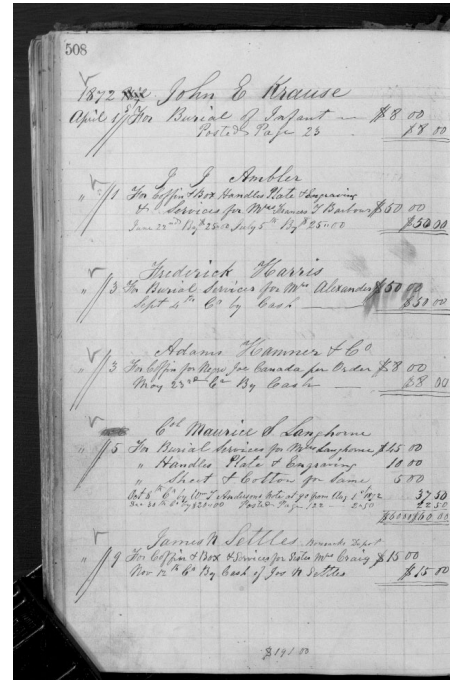 508
1872 John E Krause
April 1st For Burial of Infant — $8 00
Posted Page 23 $8 00
J J Ambler
" 1 For Coffin & Box Handles Plate & Engraving
& Services for Mrs Frances T Barbour $50 00
June 22nd By $25.00 July 5th By $25.00 $50 00
Frederick Harris
" 3 For Burial Services for Mrs Alexander $50 00
Sept 4th Cr by Cash $50 00
Adams Hamner & Co
" 3 For Coffin for Negro Joe Canada per Order $8 00
May 23rd Cr By Cash $8 00
Col Maurice S Langhorne
" 5 For Burial Services for Mrs Langhorne $45 00
" Handles Plate & Engraving 10 00
" Sheet & Cotton for Same 5 00
Oct 8th Cr by Wm Andersons note at 90 from Aug 1st 1872 37 50
Posted Page 122 22 50
$60 00 $60 00
James N Settles
" 9 For Coffin & Box & Services for Sister Mrs Craig $15 00
Nov 12th Cr By Cash of Jas N Settles $15 00
$191.00